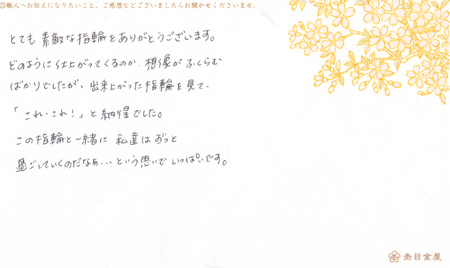 ◎職人へお伝えになりたいこと、ご感想などございましたらお聞かせくださいませ。
とても素敵な指輪をありがとうございます。
どのように仕上がってくるのか、想像がふくらむ
ばかりでしたが、出来上がった指輪を見て、
「これ・これ!」と納得でした。
この指輪と一緒に私達はずっと
過ごしていくのだなぁ…という思いでいっぱいです。
杢目金屋